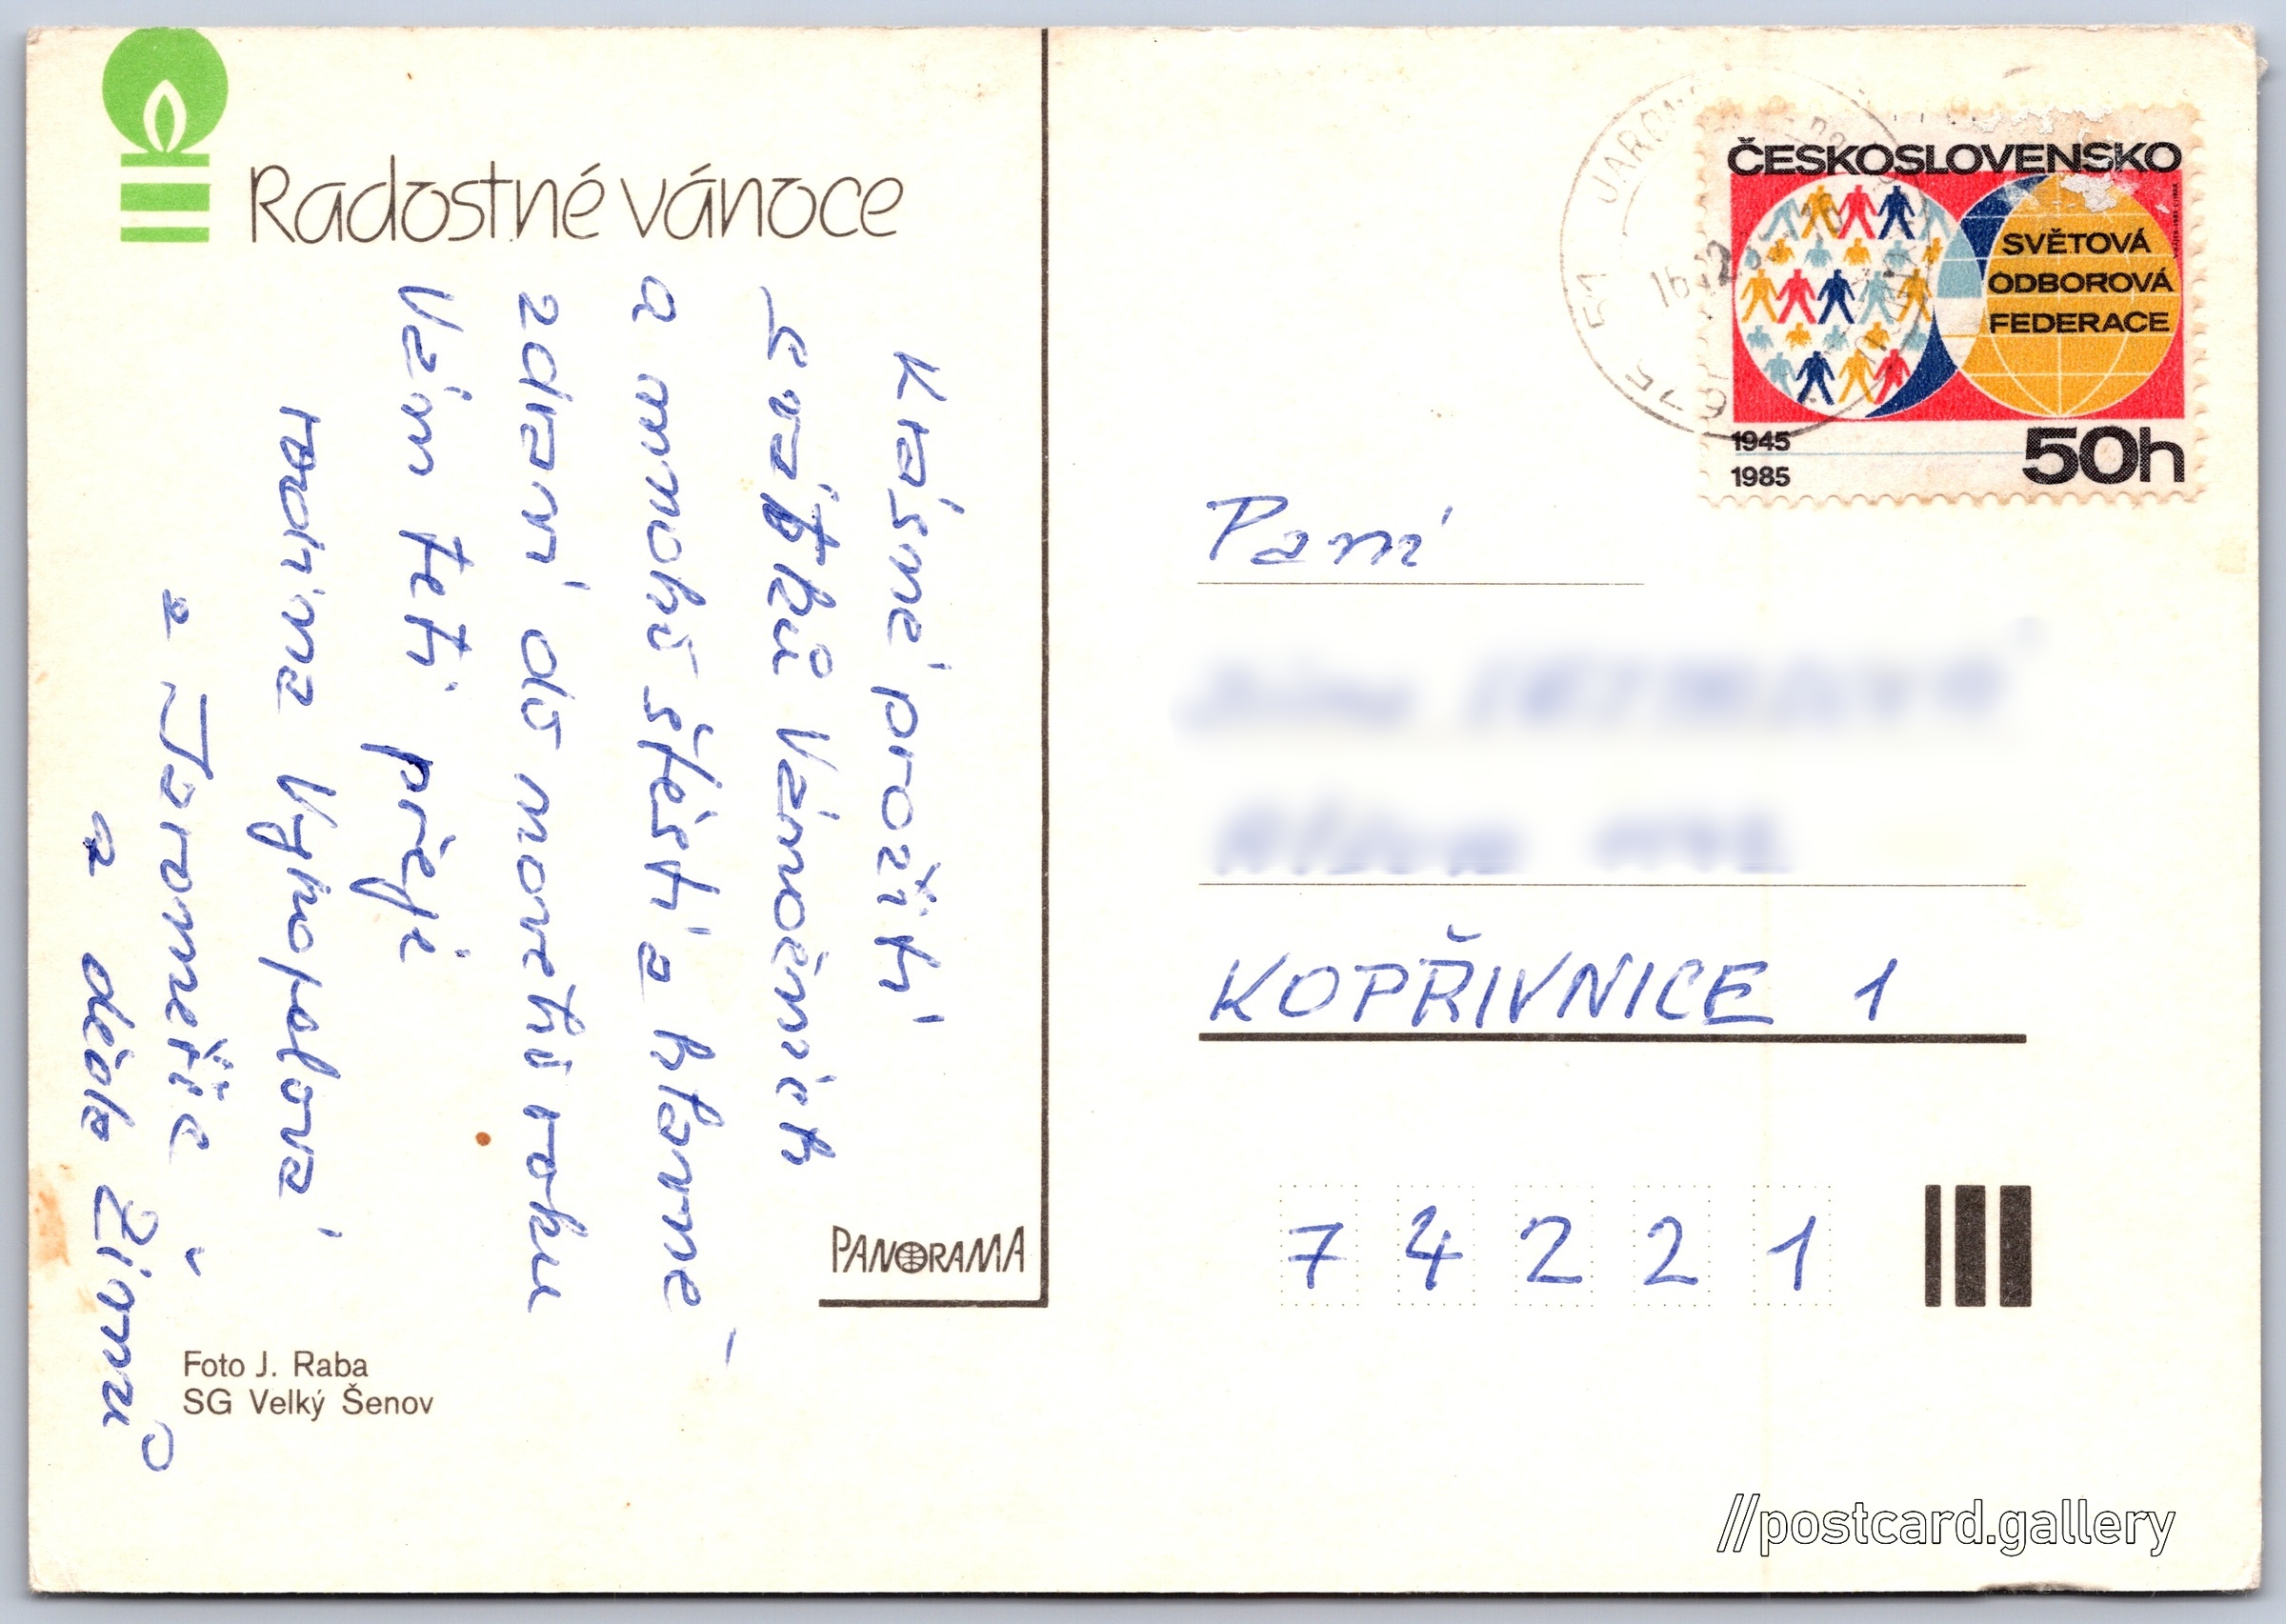 Radostné vánoce
Krásné prožití
svátků Vánočních
a mnoho štěstí a hlavně
zdraví do nového roku
Vám teti přeje
rodina Vykopalová
z Jaroměřic
a děda Zimů
PANORAMA
Foto J. Raba
SG Velký Šenov
ČESKOSLOVENSKO
SVĚTOVÁ
ODBOROVÁ
FEDERACE
1945
1985
50h
675 51 JAROM
16.12
Paní
KOPŘIVNICE 1
74221
//postcard.gallery